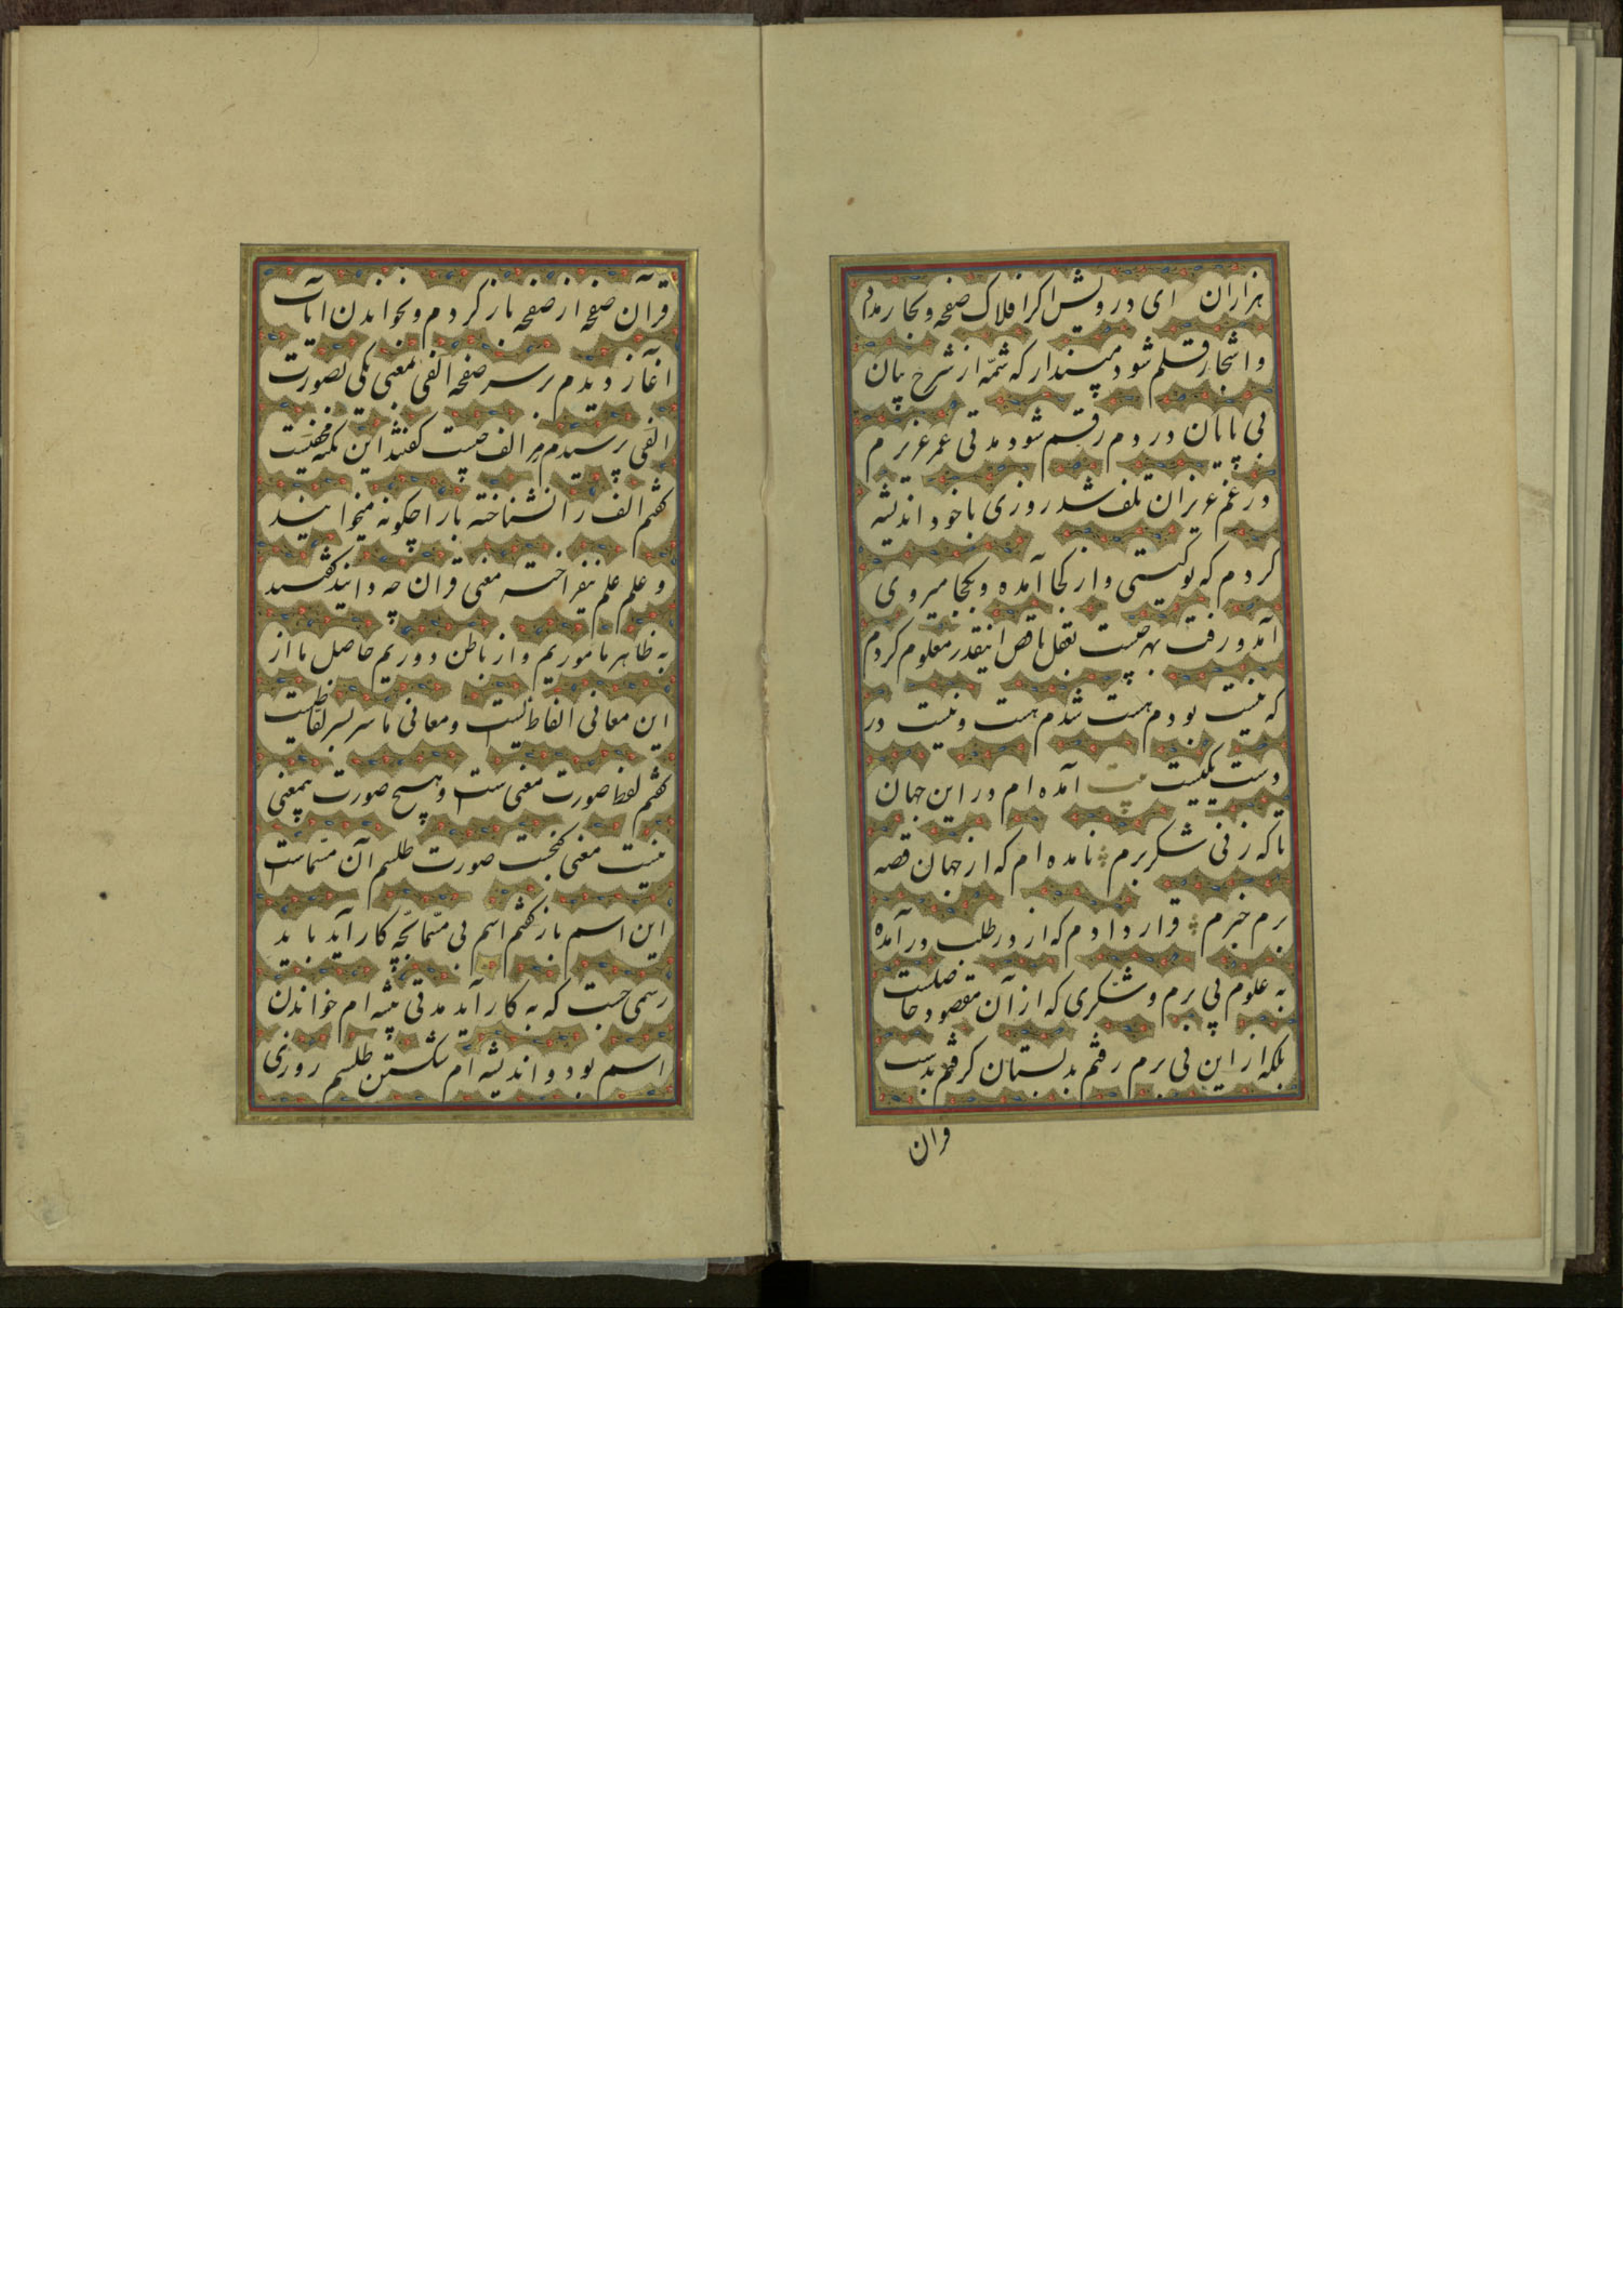 هزاران ای درویش اکر افلاک صفحه و بحار مداد
و اشجار قلم شود مپندار که شمّه از شرح بیان
بی پایان دردم رقم شود مدتی عمر عزیزم
در غم عزیزان تلف شد روزی با خود اندیشه
کردم که توکیستی و از کجا آمده و بکجا میروی
آمد و رفت بهر چیست بعقل ناقص اینقدر معلوم کردم
که نیست بودم هست شدم هست و نیست در
دست یکیست بیت آمده ام در این جهان
تا که زنی شکر برم نامده ام که از جهان قصه
برم خبرم قرار دادم که از در طلب در آمده
به علوم پی برم و شکری که از آن مقصود حاصلست
بلکه از این نی برم رفتم بدبستان کرفتم بدست
قران
قرآن صفحه از صفحه باز کردم و بخواندن ایات
آغاز دیدم بر سر صفحه الفی بمعنی یکی بصورت
الفی پرسیدم سر الف چیست کفتند این نکته مخفیست
کفتم الف را نشناخته با را چکونه میخوانید
و علم علم نیفراخته معنی قران چه دانید کفتند
به ظاهر ماموریم و از باطن دوریم حاصل ما از
این معانی الفاظ نیست و معانی ما سر بسر لفاظیست
کفتم لفظ صورت معنی است و هیچ صورت بیمعنی
نیست معنی کنجست صورت طلسم آن مسّماست
این اسم باز کفتم اسم بی مسّما بچه کار آید باید
رسمی جست که به کار آید مدتی پیشه ام خواندن
اسم بود و اندیشه ام شکستن طلسم روزی